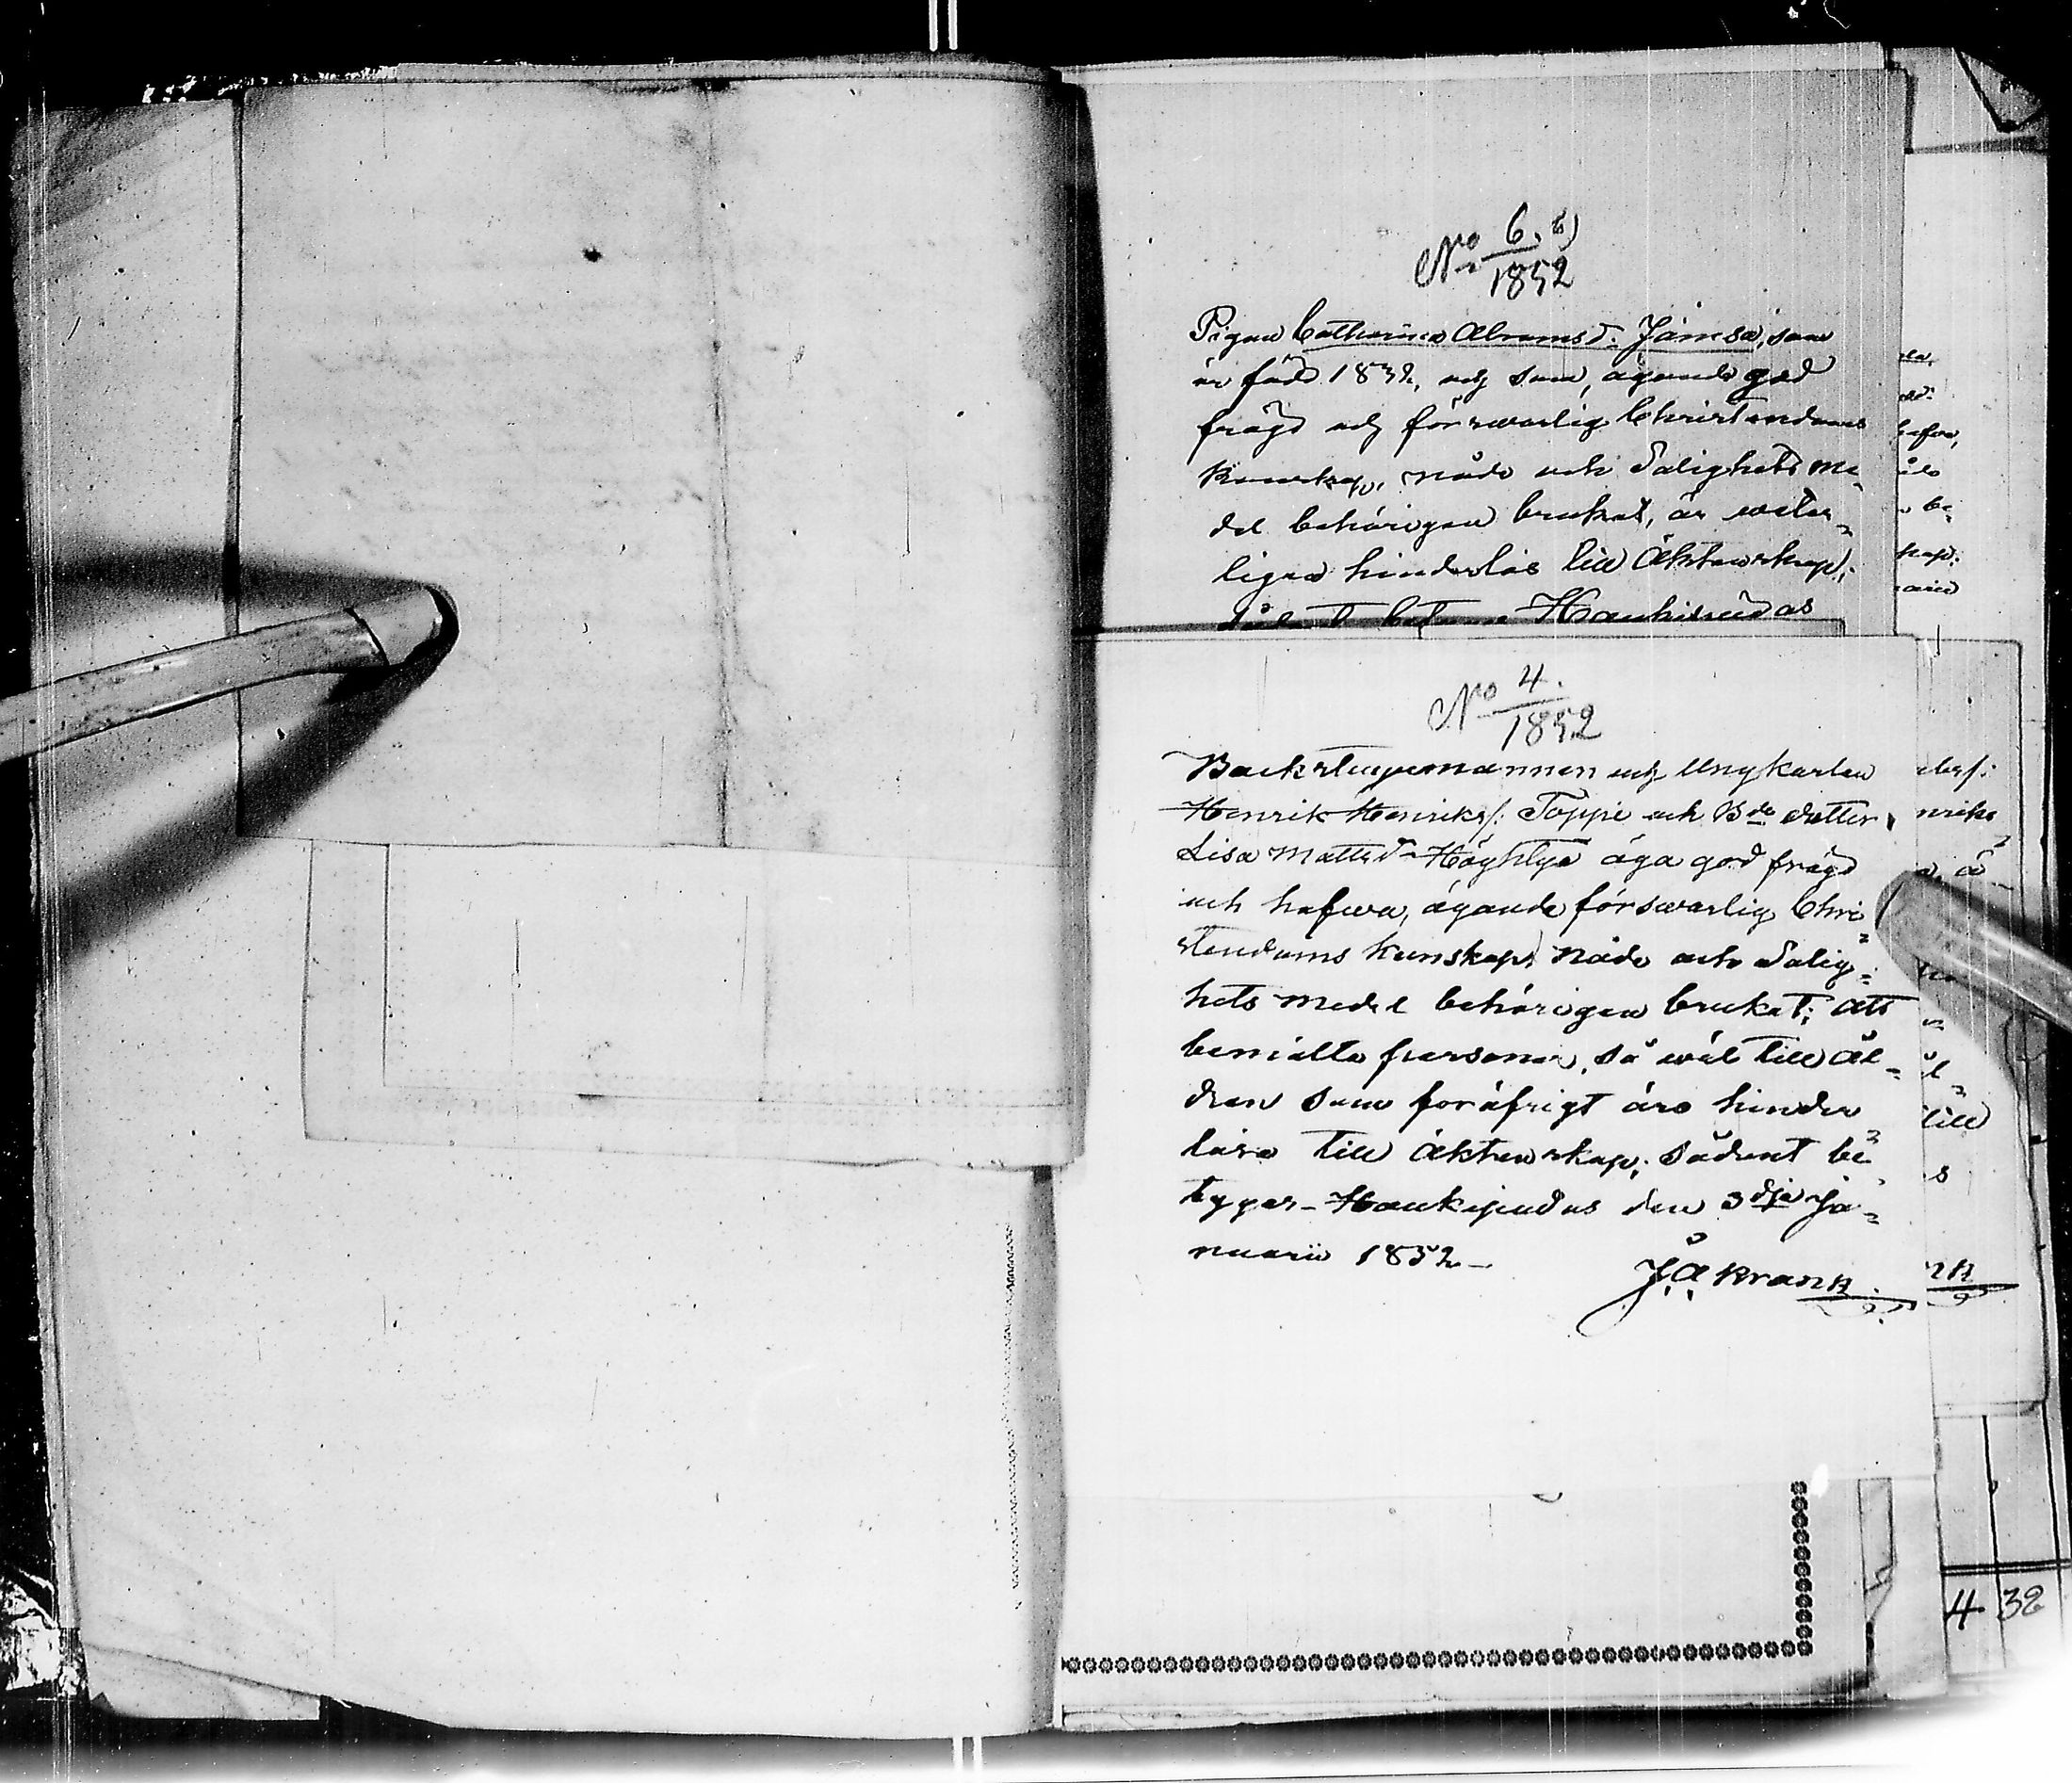 No 6. b)
1852
Pigan Catharina Abramsd: Jämsä, som
är född 1832, och som, ägande god
frägd och försvarlig Christendoms
Kunskap, nåde och Salighets me-
del behörigen brukat, är veter-
ligen hinderlös till Äktenskap;
Haukipudas
No 4.
1852
Backstugumannen och Ungkarlen
Henrik Henriks/: Toppi och Bde dotter
Lisa Mattsd Höyhtyä äga god frägd
och hafwa, ägande försvarlig Chri-
stendoms kunskap, nåde och Salig-
hets medel behörigen brukat; att
bemälta personer, så wäl till Ål-
dren som för öfrigt äro hinder
lösa till Äktenskap; sådant be-
tygar Haukipudas den 3dje Ja-
nuarii 1852
J. A. Krank
4 32